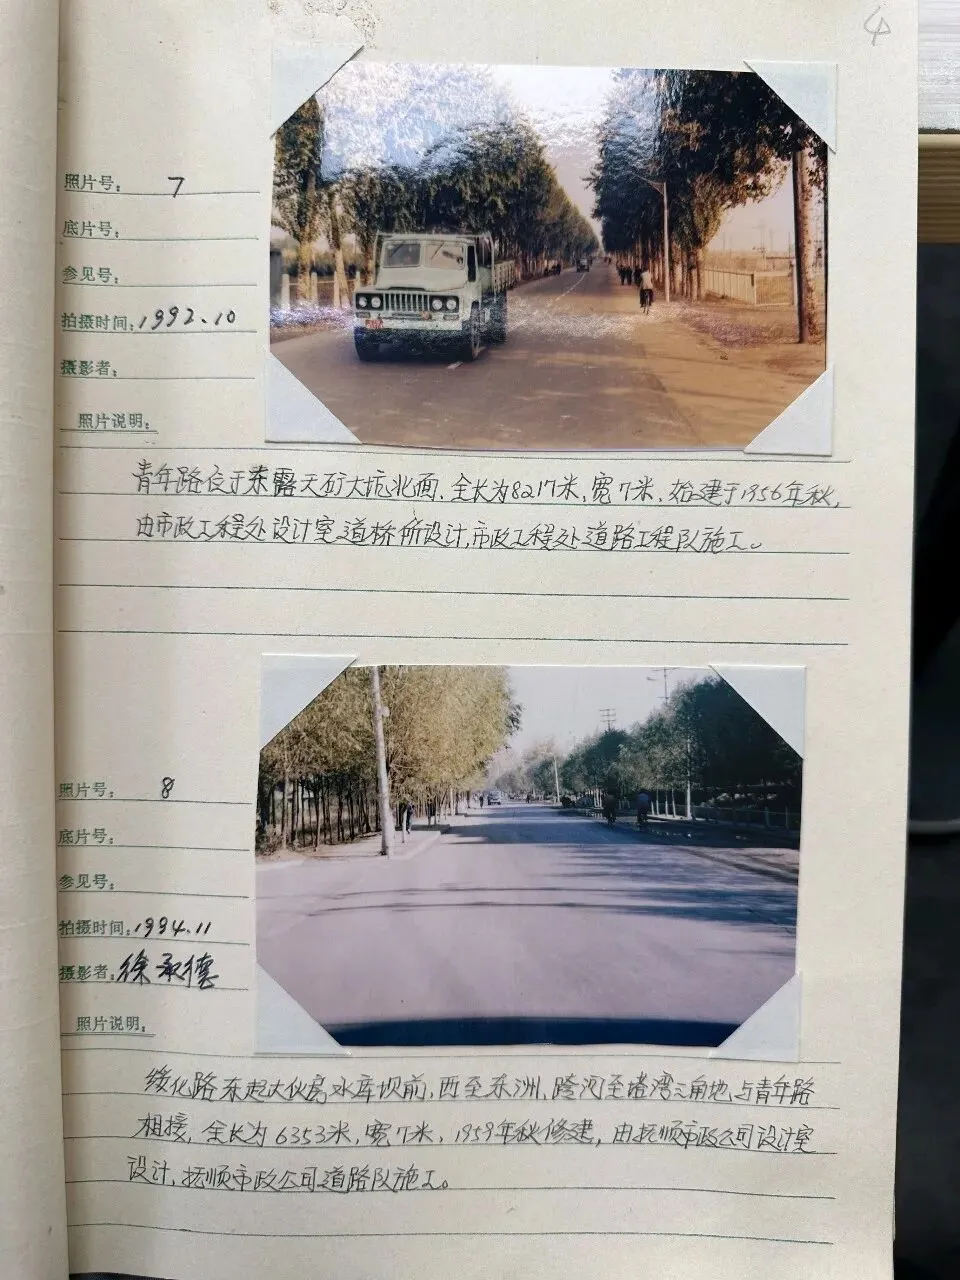 4
照片号： 7
底片号：
参见号：
拍摄时间：1992.10
摄影者：
照片说明：
青年路位于东露天矿大坑北面，全长为8217米，宽7米，始建于1956年秋，
由市政工程处设计室道桥所设计，市政工程处道路工程队施工。
照片号： 8
底片号：
参见号：
拍摄时间：1994.11
摄影者：徐承德
照片说明：
绥化路东起大伙房水库坝前，西至东洲，跨河至塔湾三角地，与青年路
相接，全长为6353米，宽7米，1959年秋修建，由抚顺市政公司设计室
设计，抚顺市政公司道路队施工。